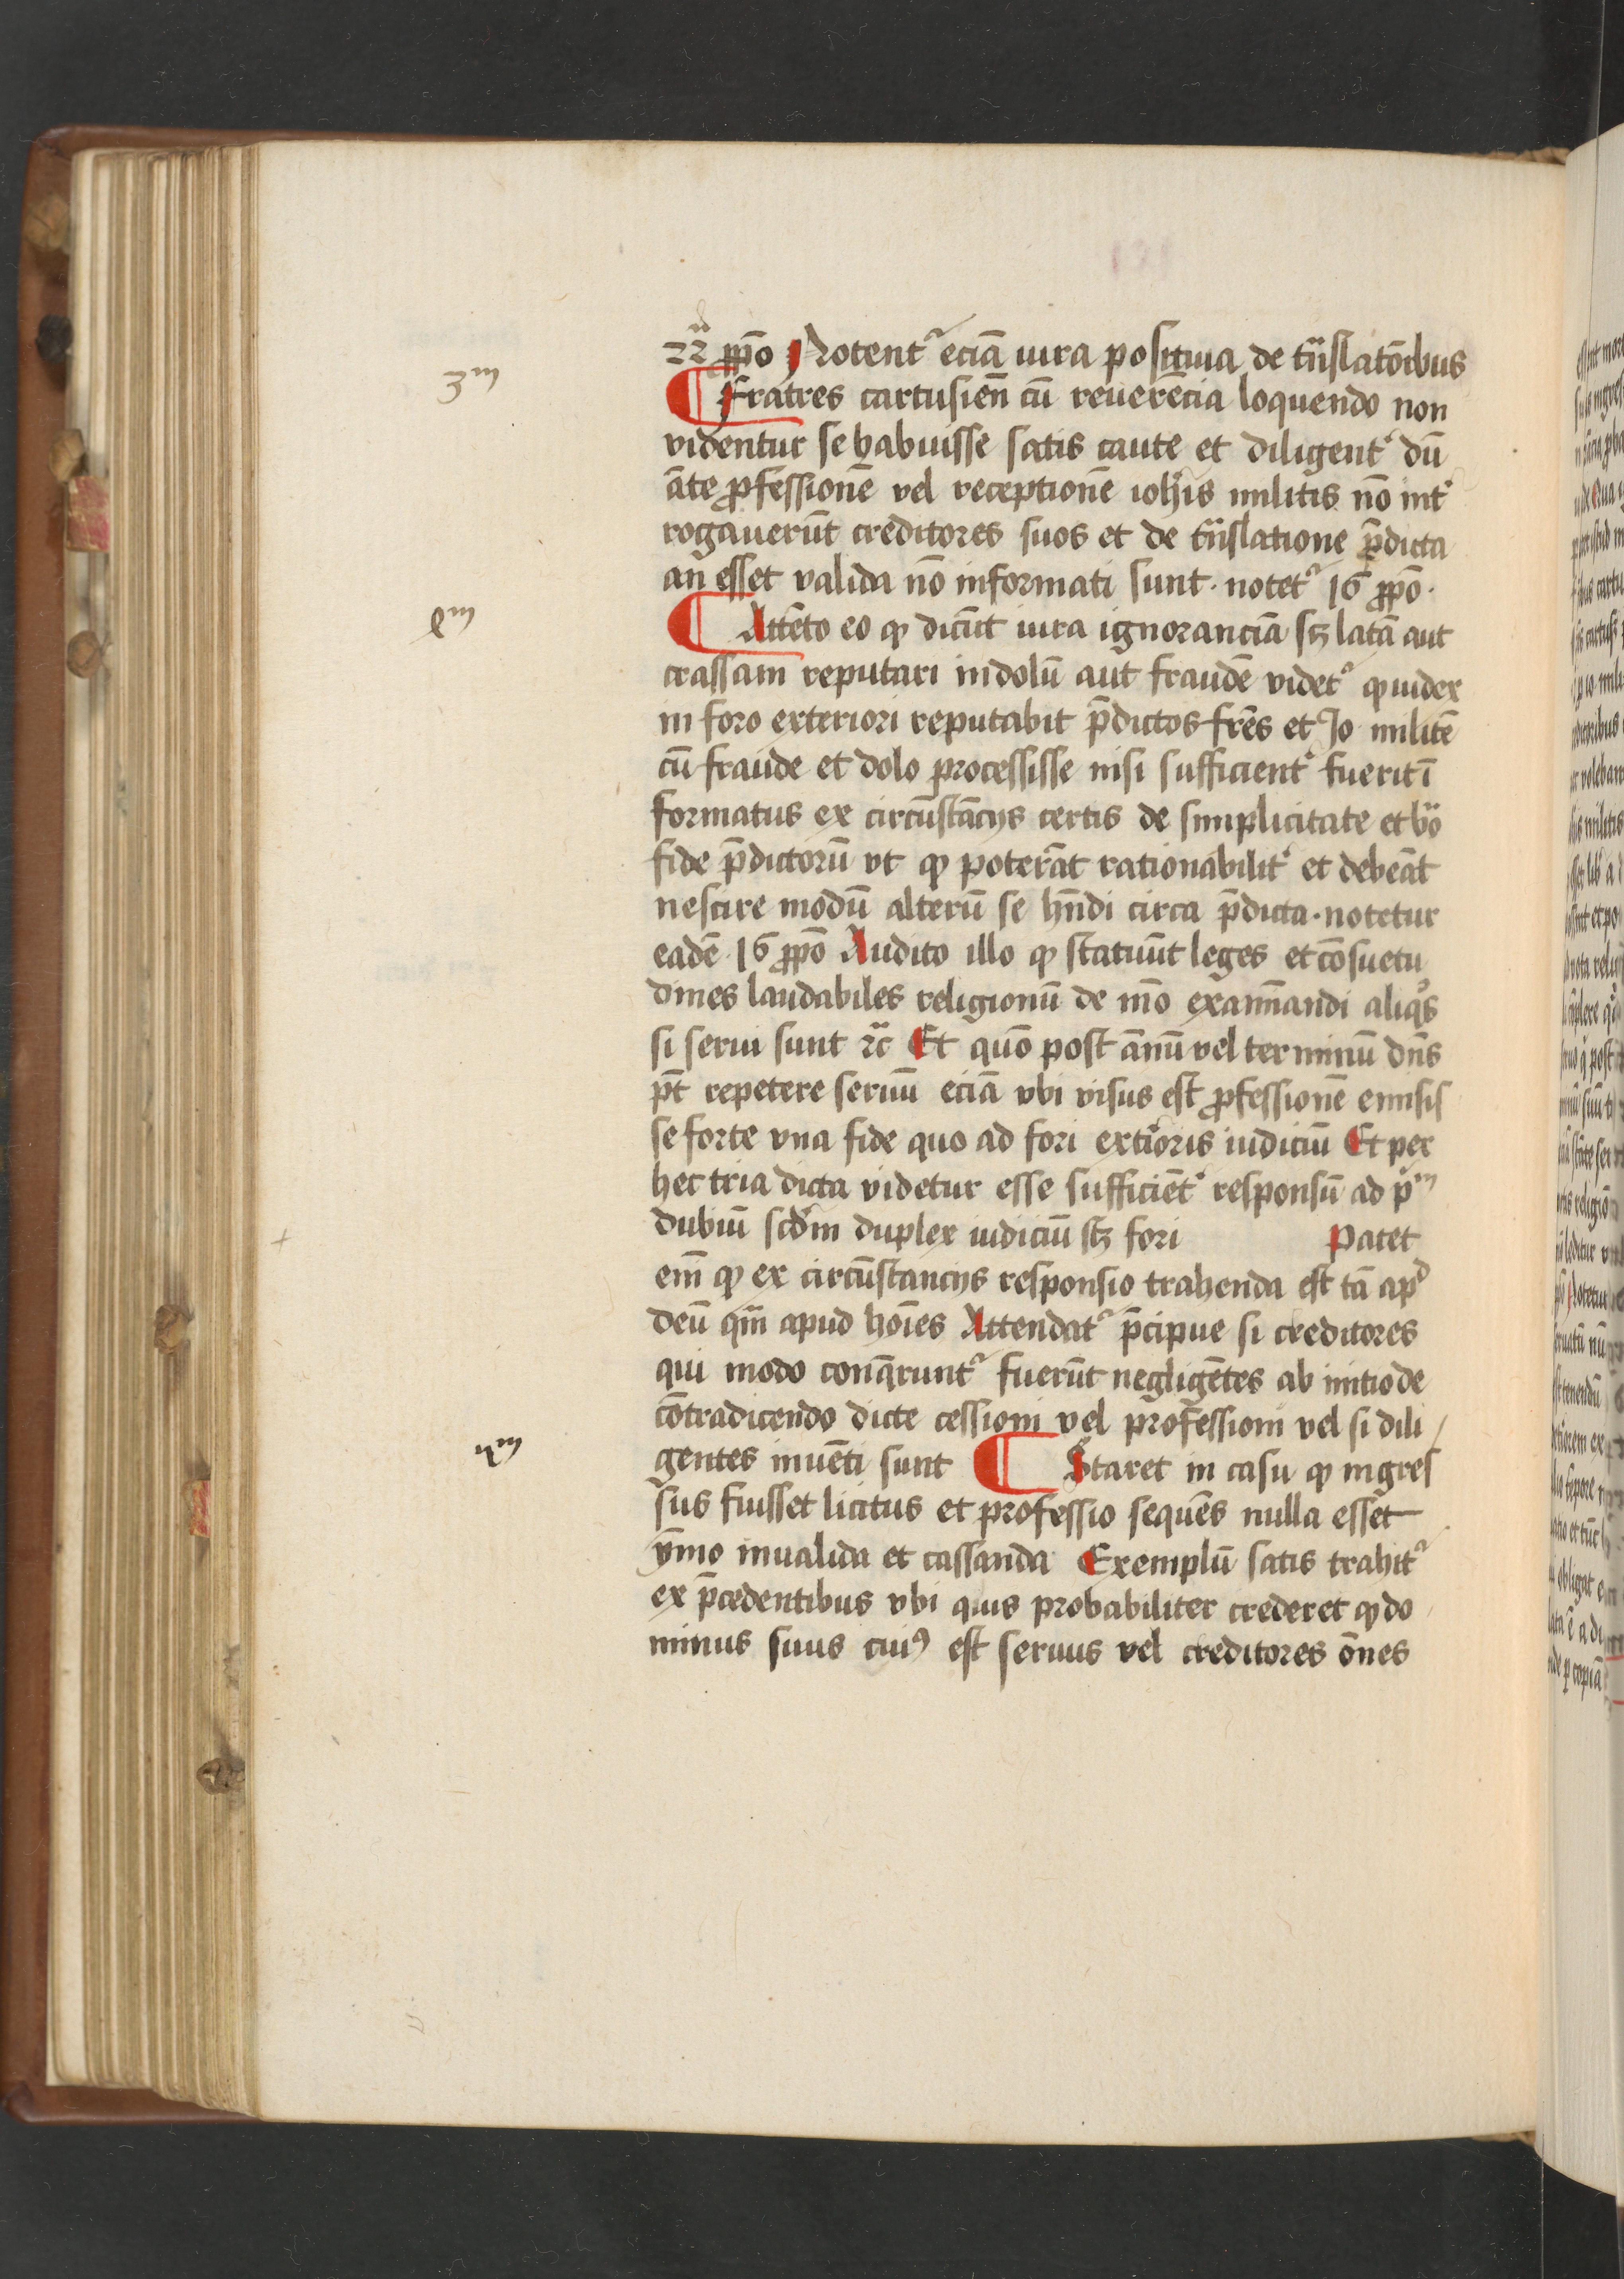 22ª ꝓpo Notentᷣ eciã iura positiua de tᷓnslatõibus
3m
Fratres cartusieñ cũ reuerẽcia loquendo non
videntur se habuisse satis caute et diligentᷣ dũ
ãte ꝓfessionẽ vel receptionẽ ioħis militis nõ intᷣ
rogauerũt creditores suos et de tᷓnslatione p̃dicta
an esset valida nõ informati sunt · notetᷣ 16 ꝓpõ ·
Attẽto eo ꝙ dicũt iura ignoranciã sꝫ latã aut
crassam reputari in dolũ aut fraudẽ videtᷣ ꝙ iudex
in foro exteriori reputabit p̃dictos fr̃es et Jo militẽ
cũ fraude et dolo processisse nisi sufficientᷣ fuerit ĩ
formatus ex circũstãcijs certis de simplicitate et bõ
fide p̃dictorũ vt ꝙ poterãt rationabilitᷣ et debeãt
nescire modũ alterũ se hñdi circa p̃dicta · notetur
eadẽ 16 ꝓpõ Audito illo ꝙ statuũt leges et cõsuetu
dines laudabiles religionũ de mõ examĩandi aliqͦs
si serui sunt ⁊c̃ Et quõ post ãnũ vel terminũ dñs
pt̃ repetere seruũ eciã vbi visus est ꝓfessionẽ emisis
se forte vna fide quo ad fori extᷣioris iudiciũ Et per
hec tria dicta videtur esse sufficiẽtᷣ responsũ ad pᷣm
dubiũ scd̃m duplex iudiciũ sꝫ fori Patet
em̃ ꝙ ex circũstancijs responsio trahenda est tã apᵈ
deũ qᷓm apud hoĩes Attendatᷣ p̃cipue si creditores
qui modo conqᷓruntᷣ fuerũt negligẽtes ab initio de
cõtradicendo dicte cessioni vel professioni vel si dili
gentes inuẽti sunt Staret in casu ꝙ ingres
sus fuisset licitus et professio sequẽs nulla esset
ỹmo inualida et cassanda Exemplũ satis trahitᷣ
ex p̃cedentibus vbi quis probabiliter crederet ꝙ do
minus suus cuiꝰ est seruus vel creditores õnes